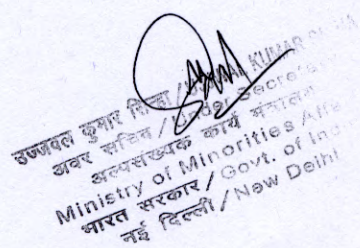 उज्जवल कुमार सिन्हा / KUMAR
अवर सचिव / Under Secre
अल्पसंख्यक कार्य मंत्रालय
Ministry of Minorities Affa
भारत सरकार / Govt. of Ind
नई दिल्ली / New Delhi